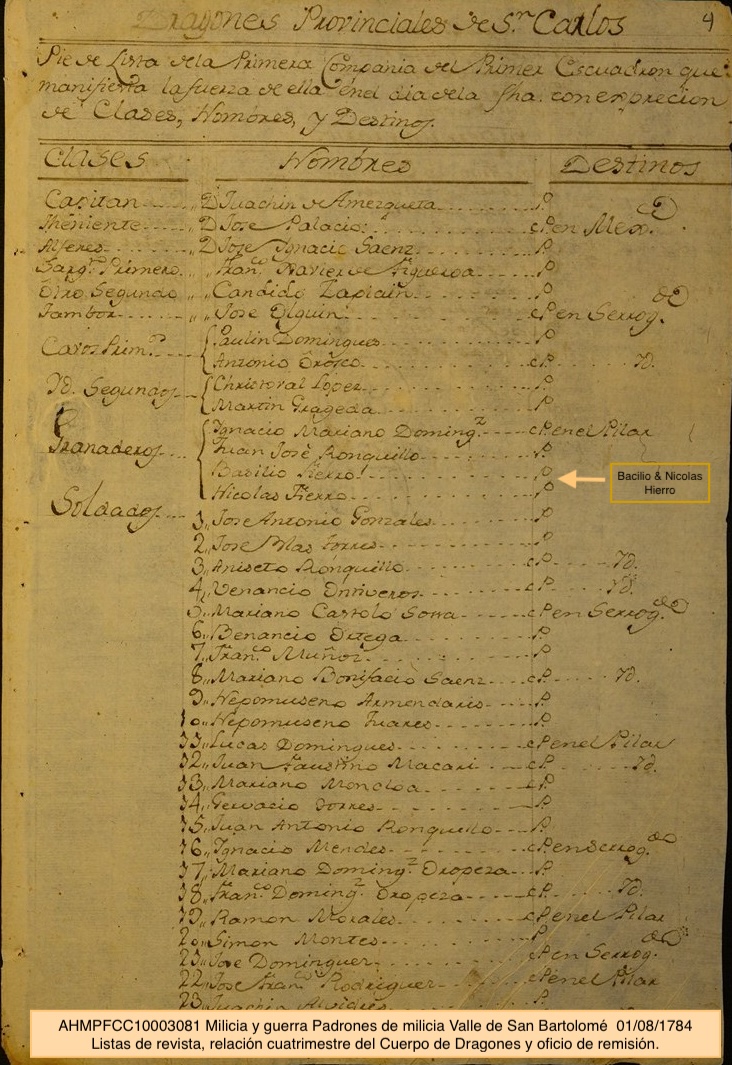 Dragones Provinciales de Sn Carlos 4
Pie de Lista dela Primera Compania del Primer Escuadron que
manifiesta la fuerza de ella enel dia dela fha. con exprecion
de Clases, Nombres, y Destinos.
Clases Nombres Destinos
Capitan D Juachin de Amezqueta P
Theniente D Jose Palacio P en Mexo.
Alferes D Jose Ignacio Saenz P
Sargto Primero Franco Xavier de Figueroa P
Otro Segundo Candido Zaplain P
Tambor Jose Olguin P en Serrog.do
Cavos Prim.os Paulin Domingues P
Antonio Orosco P Yd.
Yd. Segundos Christoval Lopez P
Martin Grageda P
Granaderos Ignacio Mariano Doming.z P enel Pilar
Juan José Ronquillo P
Basilio Fierro P
Nicolas Fierro P
Bacilio & Nicolas
Hierro
Soldados 1,, Jose Antonio Gonzales P
2,, Jose Blas Torres P
3,, Aniseto Ronquillo P Yd.
4,, Venancio Ontiveros P Yd.
5,, Mariano Castolo Sossa P en Serrog.do
6,, Benancio Ortega P
7,, Fran.co Muñoz P
8,, Mariano Bonifacio Saenz P Yd.
9,, Nepomuseno Armendaris P
10,, Nepomuseno Juares P
11,, Lucas Domingues P enel Pilar
12,, Juan Faustino Macari P Yd.
13,, Mariano Moncloa P
14,, Gervacio Torres P
15,, Juan Antonio Ronquillo P
16,, Ignacio Mendes P en Serrog.do
17,, Mariano Doming.z Oropeza P
18,, Fran.co Doming.z Oropeza P Yd.
19,, Ramon Morales P enel Pilar
20,, Simon Montes P
21,, Jose Dominguez P en Serrog.do
22,, Jose Fran.co Rodriguez P enel Pilar
23,, Juachin P
AHMPFCC10003081 Milicia y guerra Padrones de milicia Valle de San Bartolomé 01/08/1784
Listas de revista, relación cuatrimestre del Cuerpo de Dragones y oficio de remisión.